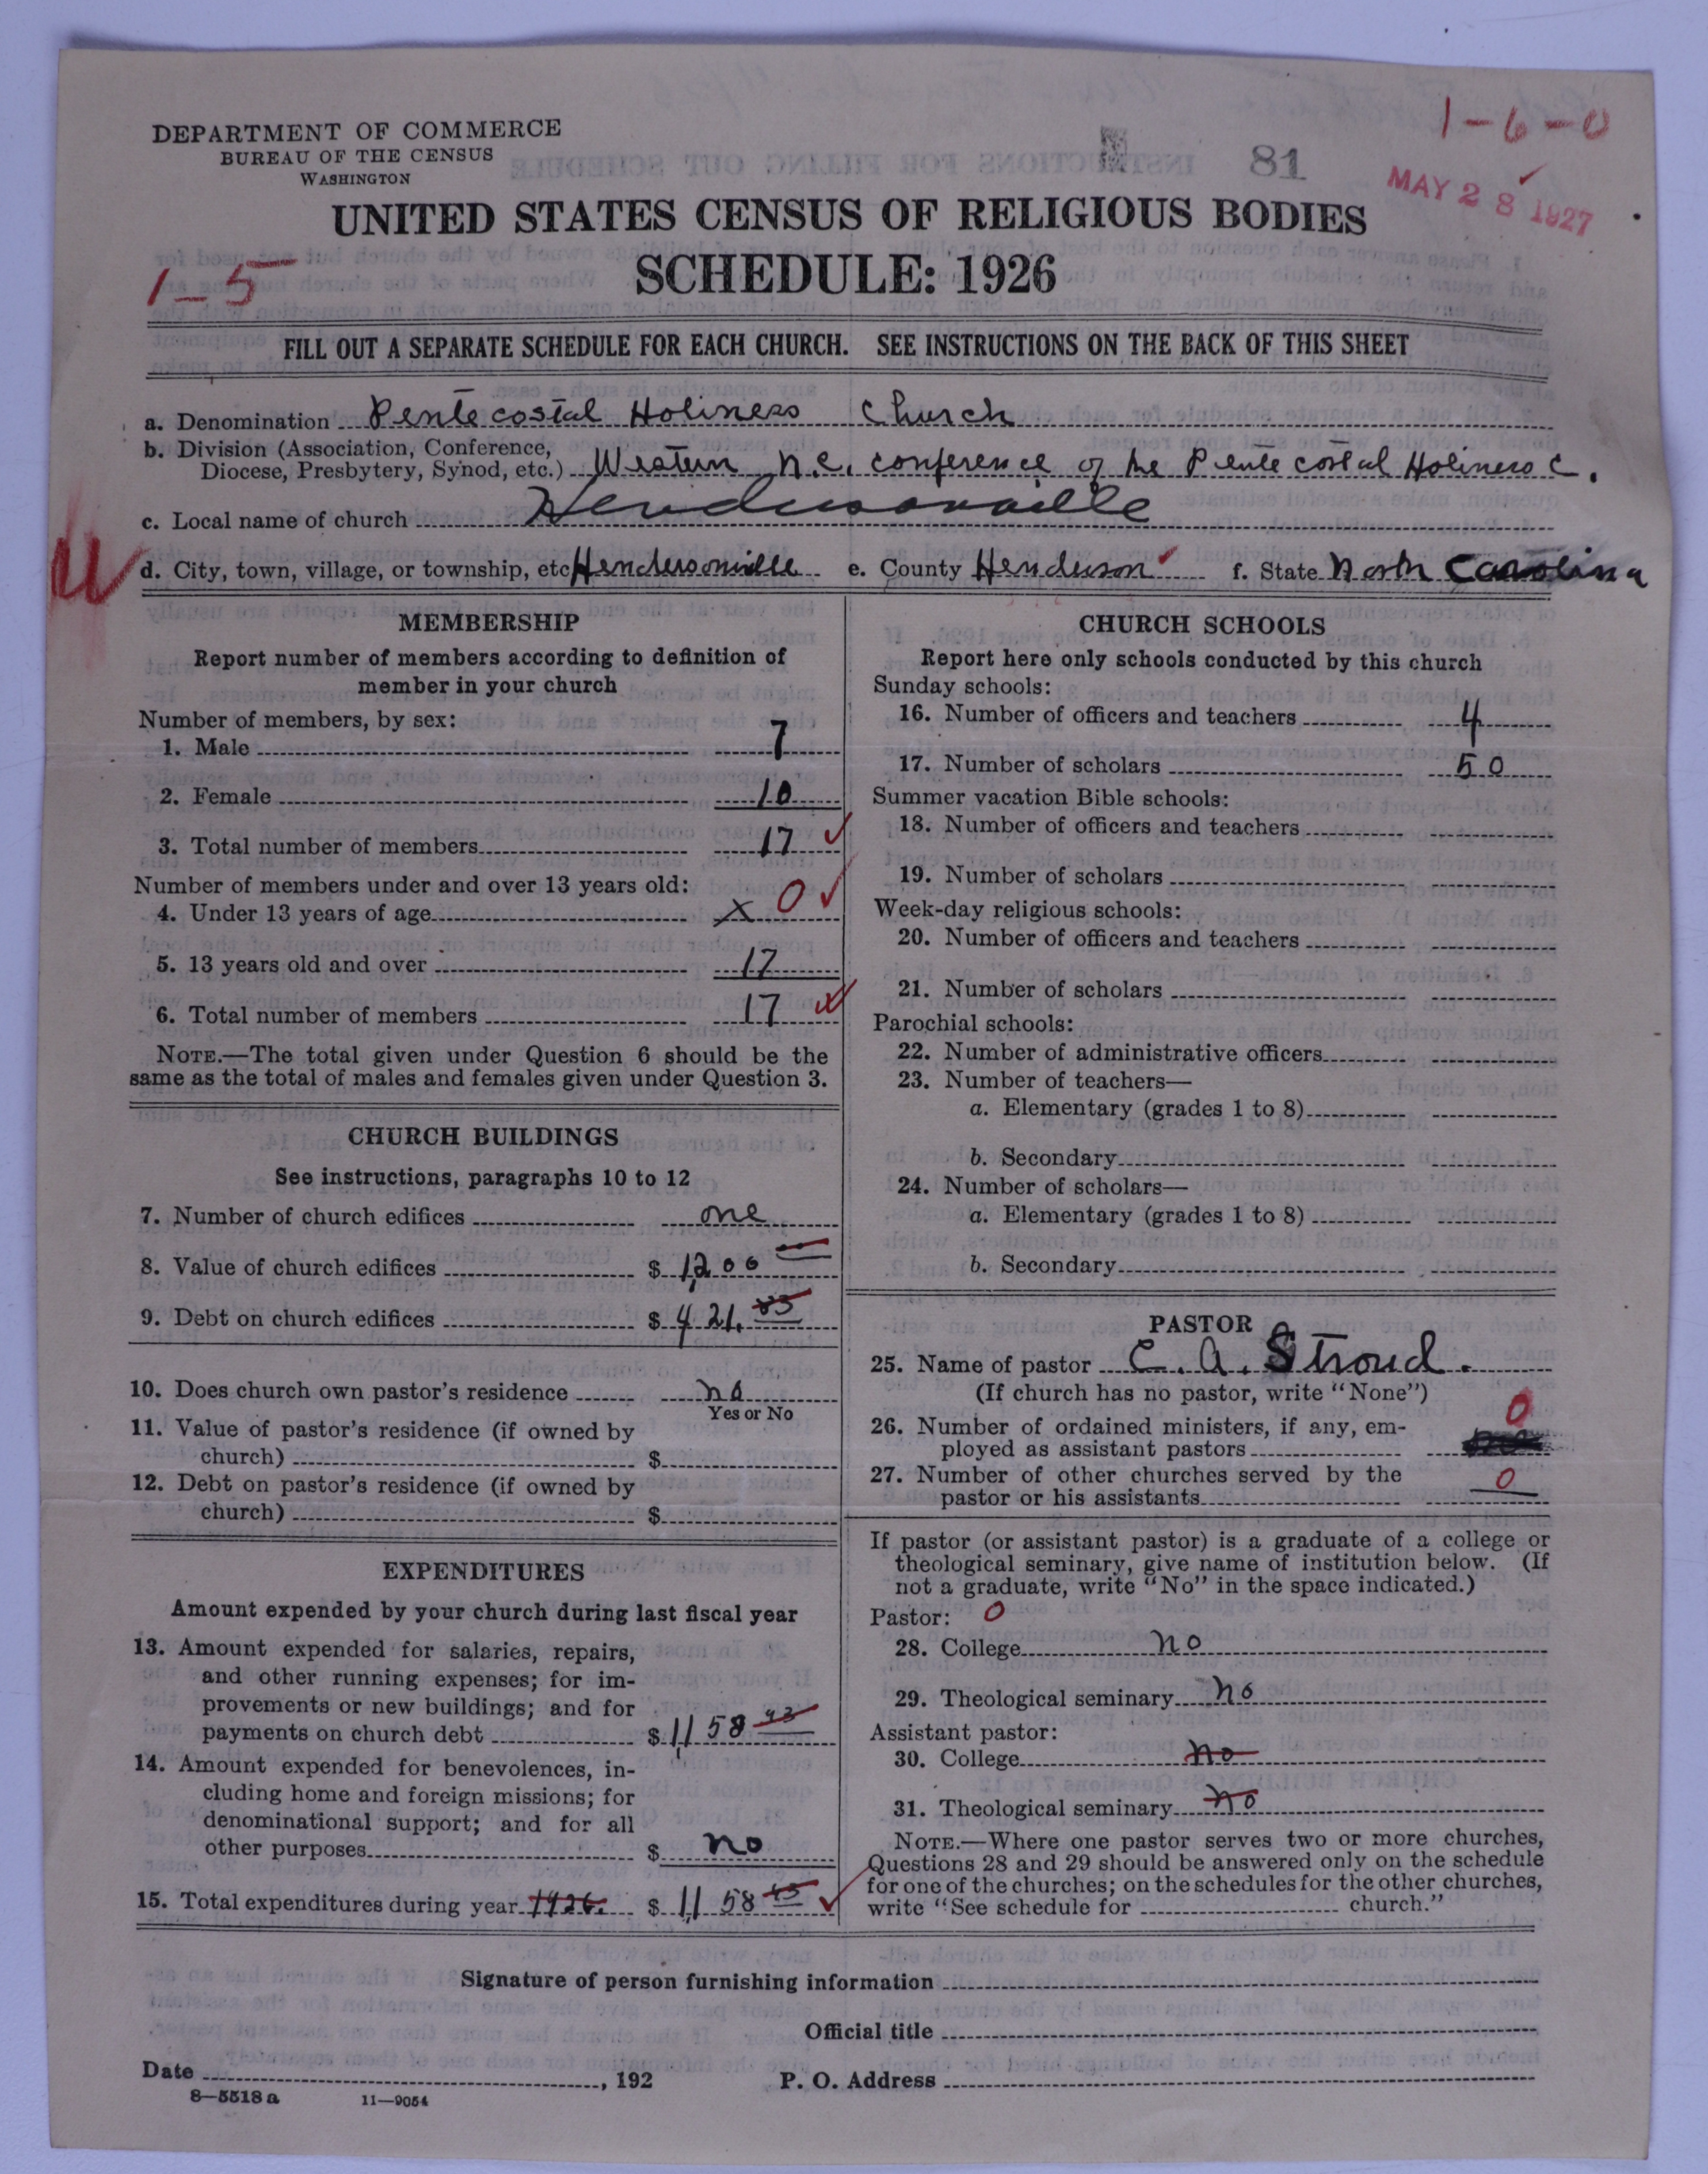 1-6-0
DEPARTMENT OF COMMERCE
BUREAU OF THE CENSUS
WASHINGTON
81
MAY 28 1927
UNITED STATES CENSUS OF RELIGIOUS BODIES
1-5
SCHEDULE: 1926
FILL OUT A SEPARATE SCHEDULE FOR EACH CHURCH. SEE INSTRUCTIONS ON THE BACK OF THIS SHEET
a. Denomination Pentecostal Holiness Church
b. Division (Association, Conference,
Diocese, Presbytery, Synod, etc.) Western N.C. conference of the Pentecostal Holiness C.
c. Local name of church Hendersonville
d. City, town, village, or township, etc. Hendersonville e. County Henderson f. State North Carolina
MEMBERSHIP
Report number of members according to definition of
member in your church
Number of members, by sex:
1. Male 7
2. Female 10
3. Total number of members 17
Number of members under and over 13 years old:
4. Under 13 years of age x 0
5. 13 years old and over 17
6. Total number of members 17
NOTE.—The total given under Question 6 should be the
same as the total of males and females given under Question 3.
CHURCH BUILDINGS
See instructions, paragraphs 10 to 12
7. Number of church edifices one
8. Value of church edifices $ 1,200
9. Debt on church edifices $ 421.
10. Does church own pastor's residence no
Yes or No
11. Value of pastor's residence (if owned by
church) $
12. Debt on pastor's residence (if owned by
church) $
EXPENDITURES
Amount expended by your church during last fiscal year
13. Amount expended for salaries, repairs,
and other running expenses; for im-
provements or new buildings; and for
payments on church debt $ 1,158
14. Amount expended for benevolences, in-
cluding home and foreign missions; for
denominational support; and for all
other purposes $ no
15. Total expenditures during year 1926. $ 1,158
CHURCH SCHOOLS
Report here only schools conducted by this church
Sunday schools:
16. Number of officers and teachers 4
17. Number of scholars 50
Summer vacation Bible schools:
18. Number of officers and teachers
19. Number of scholars
Week-day religious schools:
20. Number of officers and teachers
21. Number of scholars
Parochial schools:
22. Number of administrative officers
23. Number of teachers—
a. Elementary (grades 1 to 8)
b. Secondary
24. Number of scholars—
a. Elementary (grades 1 to 8)
b. Secondary
PASTOR
25. Name of pastor C. A. Stroud.
(If church has no pastor, write "None")
26. Number of ordained ministers, if any, em-
ployed as assistant pastors 0
27. Number of other churches served by the
pastor or his assistants 0
If pastor (or assistant pastor) is a graduate of a college or
theological seminary, give name of institution below. (If
not a graduate, write "No" in the space indicated.)
Pastor: 0
28. College no
29. Theological seminary no
Assistant pastor:
30. College no
31. Theological seminary no
NOTE.—Where one pastor serves two or more churches,
Questions 28 and 29 should be answered only on the schedule
for one of the churches; on the schedules for the other churches,
write "See schedule for church."
Signature of person furnishing information
Official title
Date , 192 P. O. Address
8—5518 a 11—9054